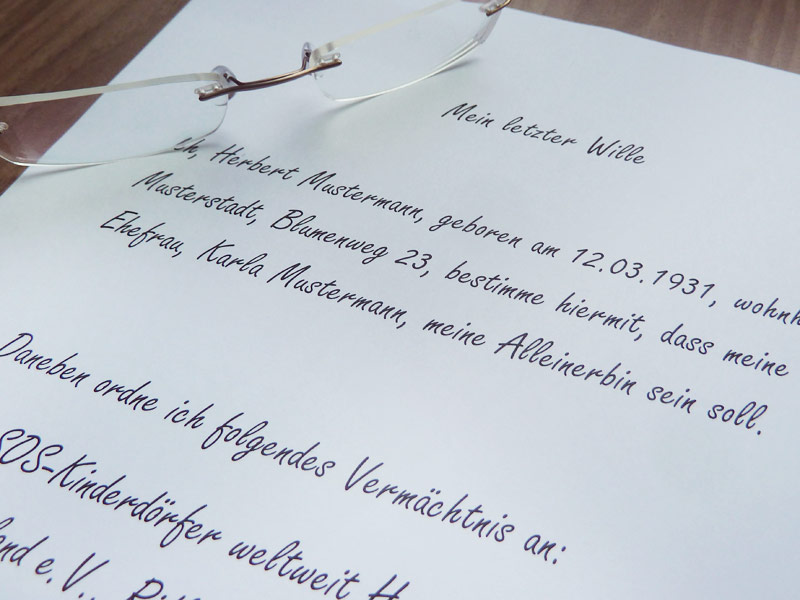 Mein letzter Wille
Ich, Herbert Mustermann, geboren am 12.03.1931,
Musterstadt, Blumenweg 23, bestimme hiermit, dass meine
Ehefrau, Karla Mustermann, meine Alleinerbin sein soll.
Daneben ordne ich folgendes Vermächtnis an:
SOS-Kinderdörfer weltweit
e.V.,